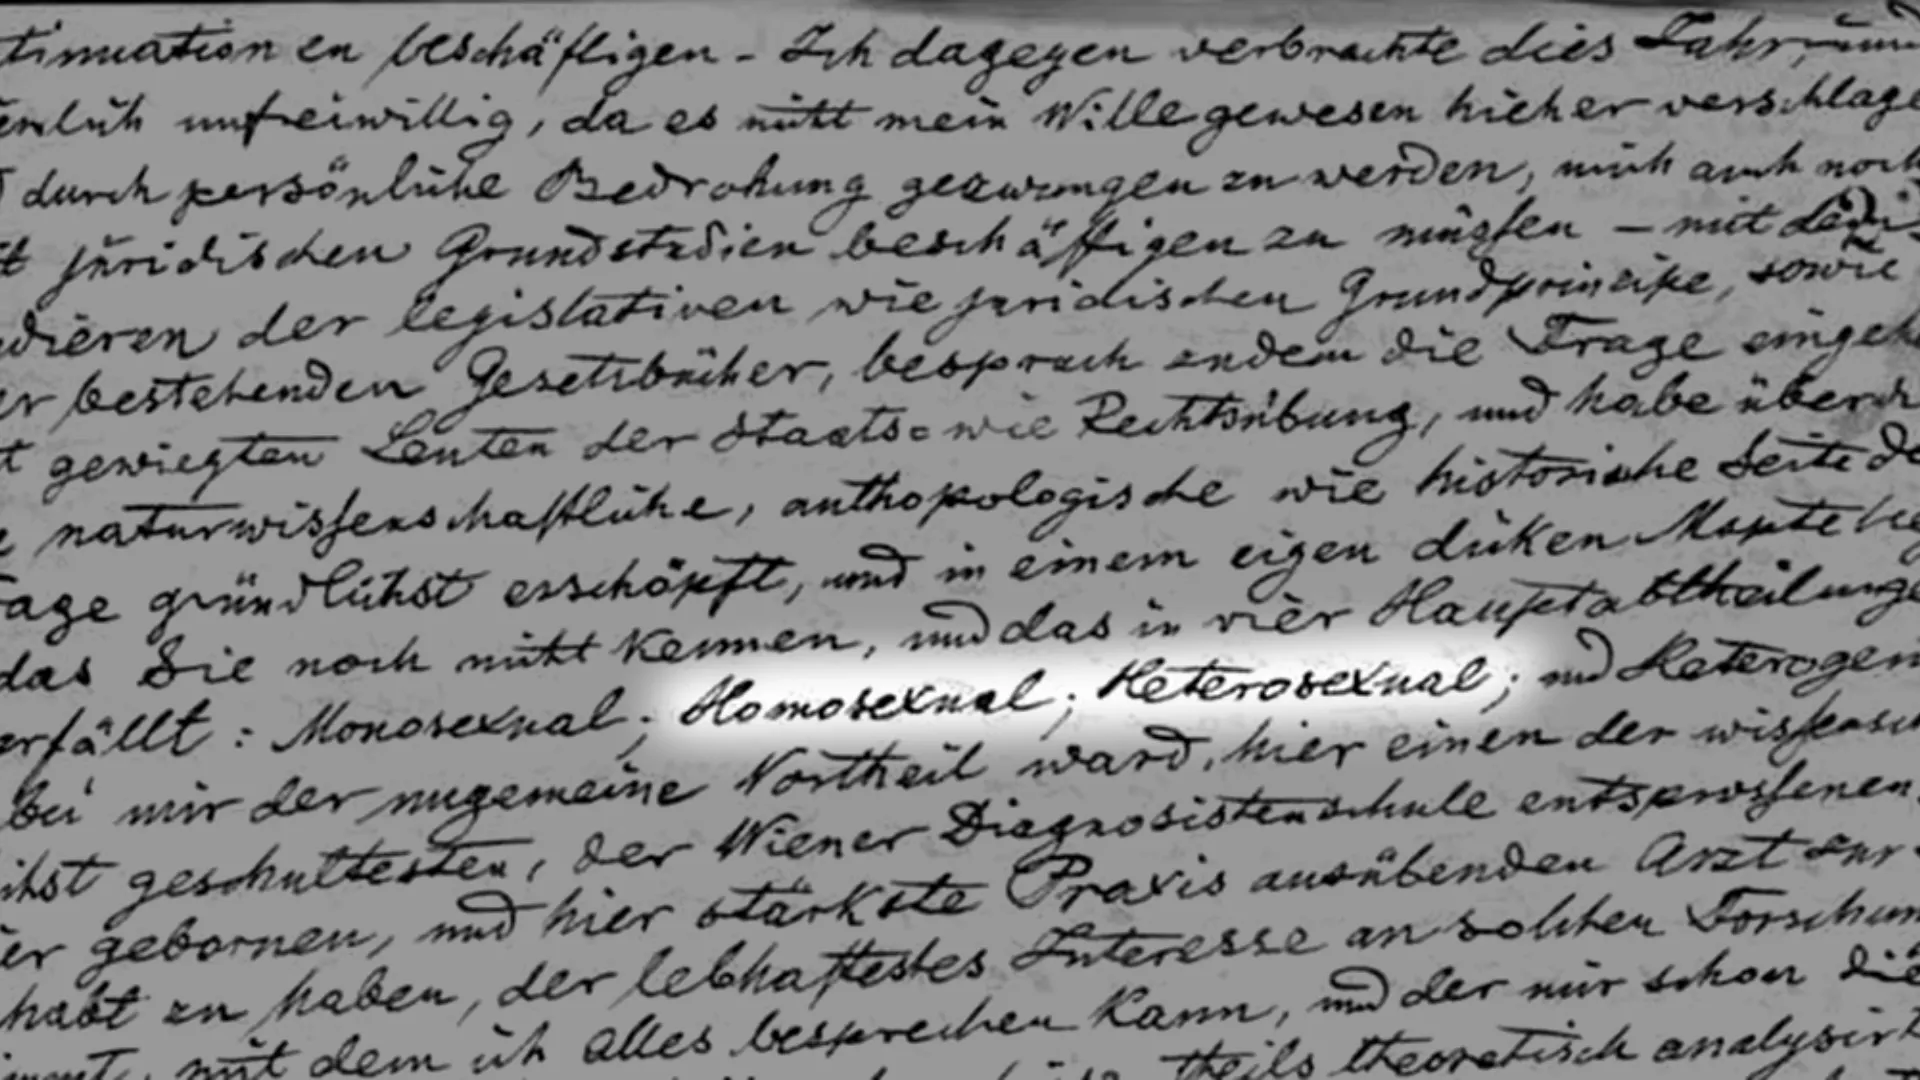 tinuation en beschäftigen - Ich dagegen verbrachte dies Jahr, und
emlich unfreiwillig, da es nicht mein Wille gewesen hieher verschlage
durch persönliche Bedrohung gezwungen zu werden, mich auch noch
it juridischen Grundstudien beschäftigen zu müssen – mit dem
udieren der legislativen wie juridischen Grundprincipe, sowie
er bestehenden Gesetzbücher, besprach zudem die Frage eingeh
t gewiegten Leuten der Staats= wie Rechtsübung, und habe überdi
e naturwissenschaftliche, anthopologische wie historische Seite de
rage gründlichst erschöpft, und in einem eigen dicken
das Sie noch nicht kennen, und das in vier Hauptabtheilunge
erfällt : Monosexual; Homosexual; Heterosexual; und Heterogen
bei mir der ungemeine Vortheil ward, hier einen der wissensch
ichst geschultesten, der Wiener Diagnosistenschule entsprossenen,
ier gebornen, und hier stärkste Praxis ausübenden Arzt zur
habt zu haben, der lebhaftestes Interesse an solchen Forschun
mit dem ich alles besprechen kann, und der mir schon die
theils theoretisch analysirt